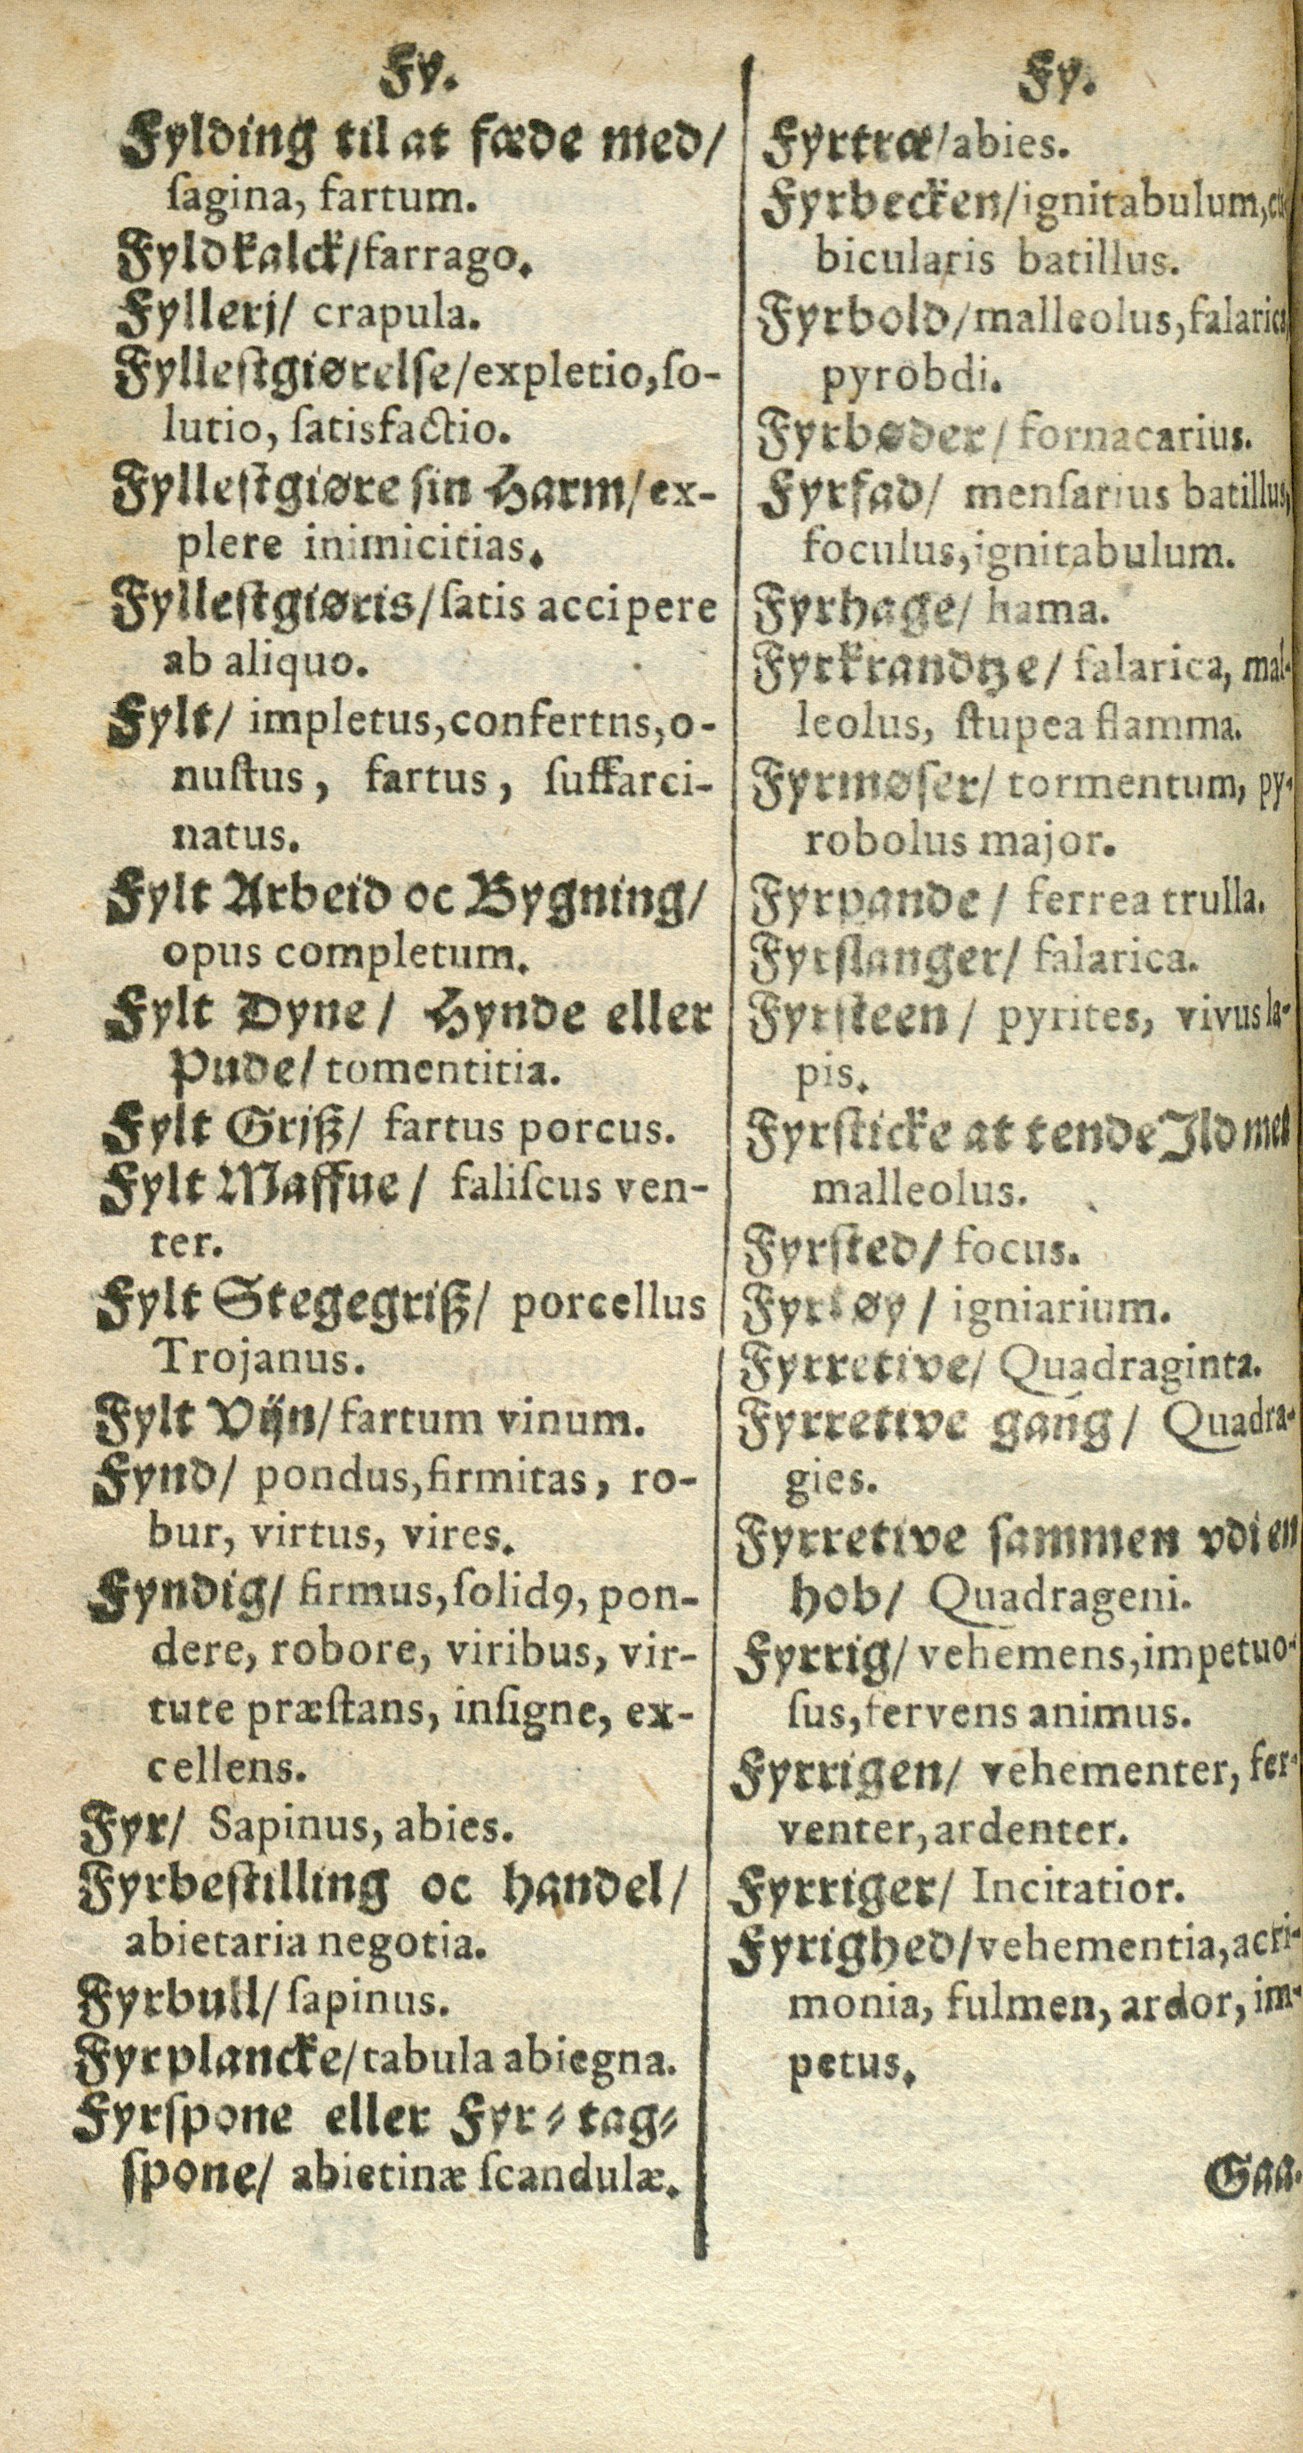 Fy.
Fylding til at fæde med/
ſagina, fartum.
Fyldkalck/farrago.
Fyllerj/ crapula.
Fylleſtgiørelſe/expletio,ſo-
lutio, ſatisfactio.
Fylleſtgiøre ſin Harm/ex-
plere inimicitias.
Fylleſtgiøris/ſatis accipere
ab aliquo.
Fylt/ impletus,confertns,o-
nuſtus, fartus, ſuffarci-
natus.
Fylt Arbeid oc Bygning/
opus completum.
Fylt Dyne/ Hynde eller
Pude/tomentitia.
Fylt Grjß/ fartus porcus.
Fylt Maffue/ faliſcus ven-
ter.
Fylt Stegegriß/ porcellus
Trojanus.
Fylt Vijn/fartum vinum.
Fynd/ pondus,firmitas, ro-
bur, virtus, vires.
Fyndig/ firmus,ſolidꝰ, pon-
dere, robore, viribus, vir-
tute præſtans, inſigne, ex-
cellens.
Fyr/ Sapinus, abies.
Fyrbeſtilling oc handel/
abietaria negotia.
Fyrbull/ſapinus.
Fyrplancke/tabula abiegna.
Fyrſpone eller Fyr-tag-
ſpone/ abietinæ ſcandulæ.
Fy.
Fyrtræ/abies.
Fyrbecken/ignitabulum,cu-
bicularis batillus.
Fyrbold/malleolus,falarica,
pyrobdi.
Fyrbøder/ fornacarius.
Fyrfad/ menſarius batillus,
foculus,ignitabulum.
Fyrhage/ hama.
Fyrkrandtze/ falarica, mal-
leolus, ſtupea flamma.
Fyrmøſer/ tormentum, py-
robolus major.
Fyrpande/ ferrea trulla.
Fyrſlanger/ falarica.
Fyrſteen/ pyrites, vivus la-
pis.
Fyrſticke at tende Ild med
malleolus.
Fyrſted/ focus.
Fyrtøy/ igniarium.
Fyrretive/ Quadraginta.
Fyrretive gang/ Quadra-
gies.
Fyrretive ſammen vdi en
hob/ Quadrageni.
Fyrrig/ vehemens,impetuo-
ſus,fervens animus.
Fyrrigen/ vehementer, fer-
venter,ardenter.
Fyrriger/ Incitatior.
Fyrighed/vehementia,acri-
monia, fulmen, ardor, im-
petus.
Gaa.